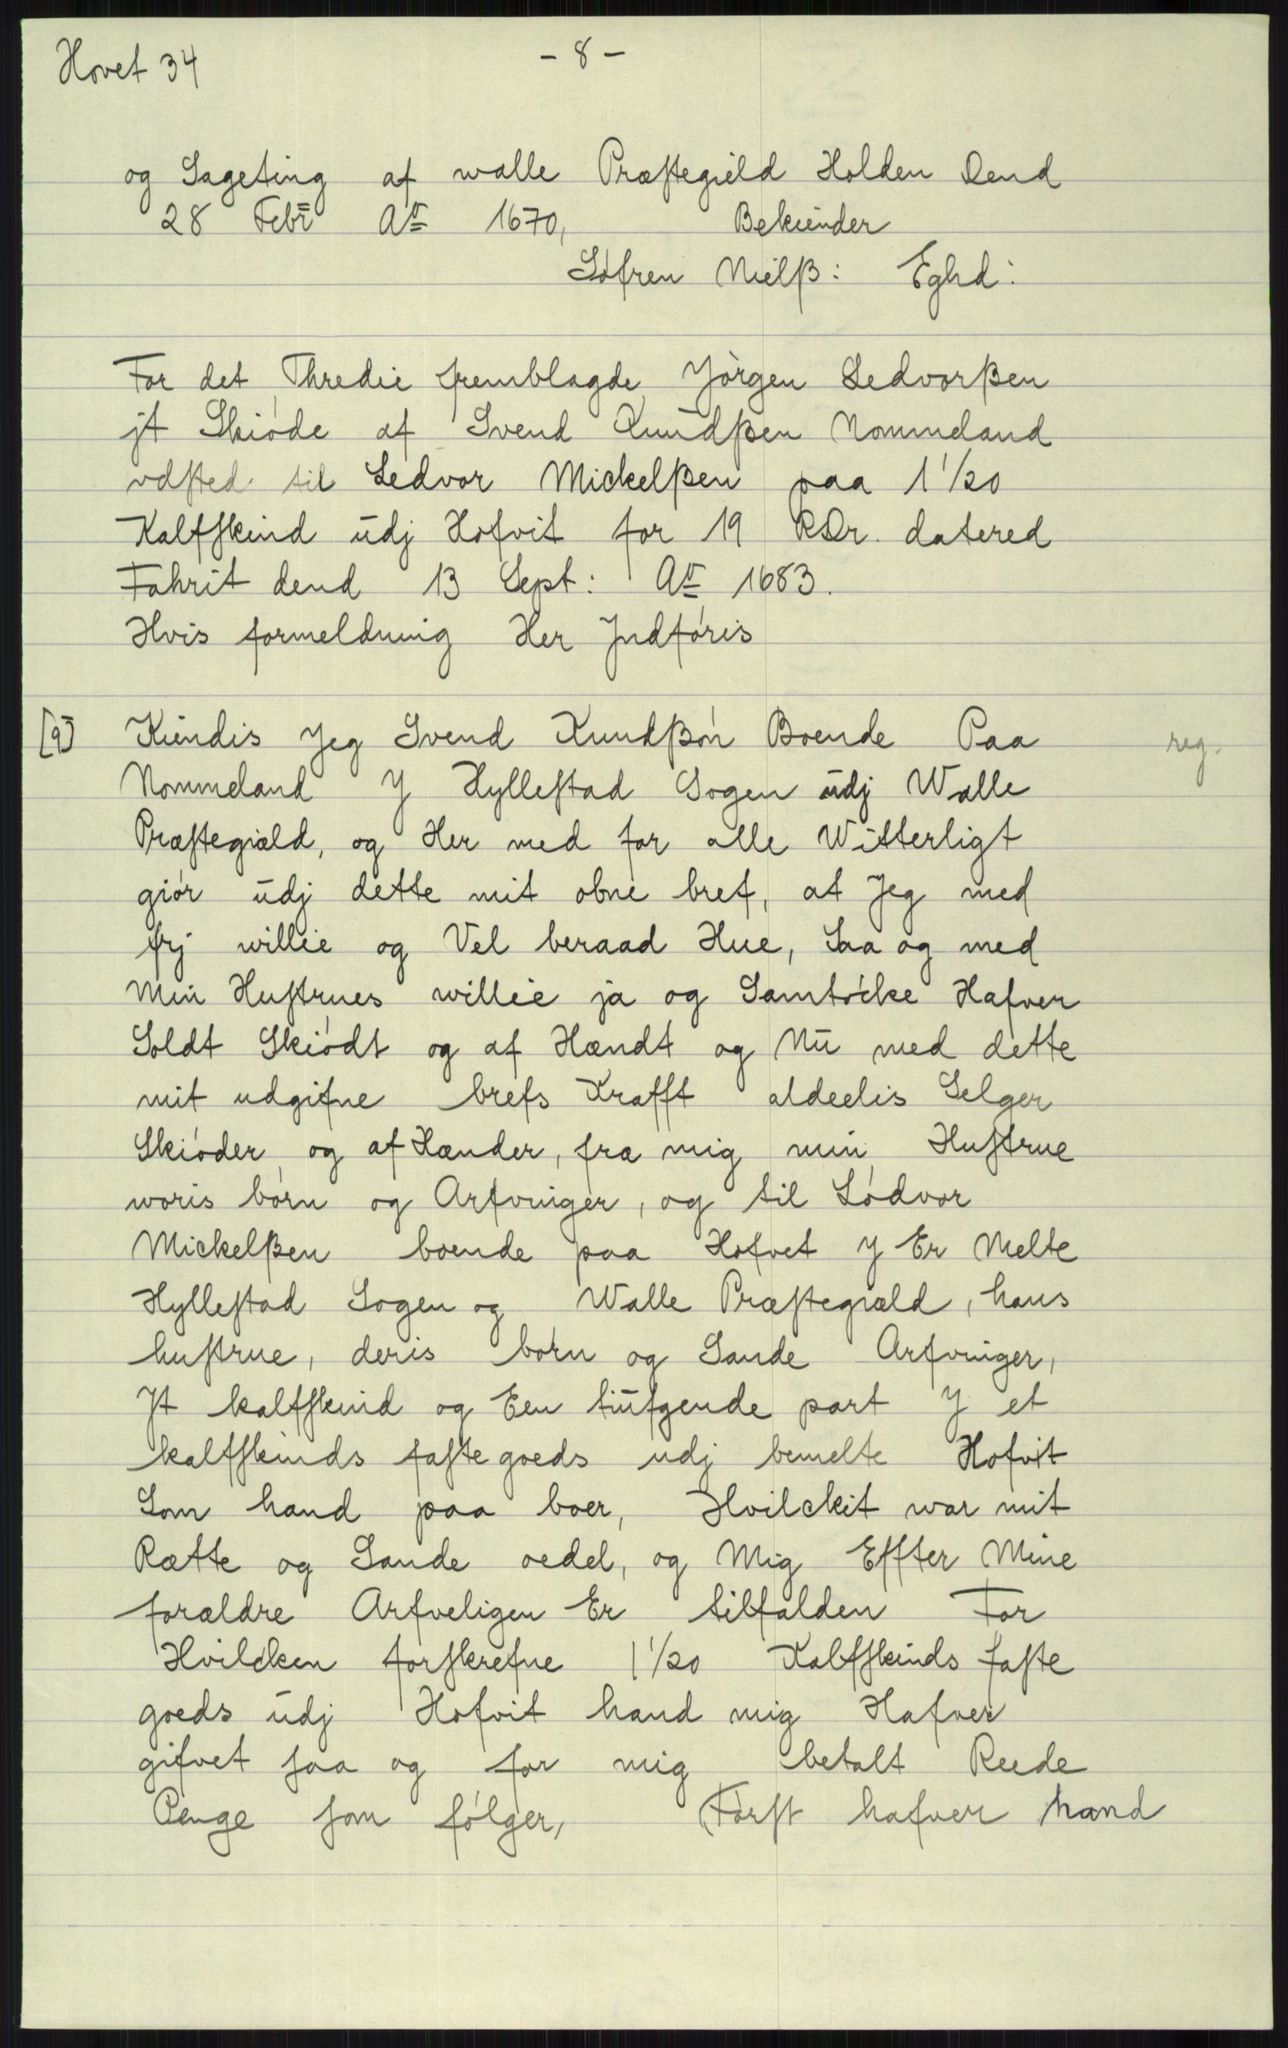 Hovet 34
- 8 -
og Sageting af walle Præstegield Holden Dend
28 Febr Ao 1670, Bekiender
Søfren Nielß: Eghd:
For det Thredie fremblagde Jørgen Ledvorßen
jt Skiøde af Svend Knudßen Nommeland
vdsted til Ledvor Mickelßen paa 1 1/20
Kalfskind udj Hofvit for 19 RDr. datered
Fahrit dend 13 Sept: Ao 1683.
Hvis formelding Her Jndføris
[9] Kiendis Jeg Svend Knudßøn Boende Paa reg.
Nommeland Y Hyllestad Sogen udj Walle
Præstegiæld, og Her med for alle Witterligt
giør udj dette mit obne bref, at Jeg med
frj willie og Vel beraad Hue, Saa og med
Min Hustrues willie ja og Samtøcke Hafver
Soldt Skiødt og af Hændt og Nu med dette
mit udgifne brefs Krafft aldeelis Selger
Skiøder og af Hænder, fra mig min Hustrue
woris børn og Arfvinger, og til Lødvor
Mickelßen boende paa Hofvet Y Er Melte
Hyllestad Sogen og Walle Præstegiæld, hans
hustrue, deris børn og Sande Arfvinger,
Jt kalfskind og Een tiufgende part Y et
kalfskinds faste goeds udj bemelte Hofvit
Som hand paa boer, Hvilckit war mit
Rætte og Sande oedel, og Mig Effter Mine
forældre Arfveligen Er tilfalden For
Hvilcken forskrefne 1 1/20 Kalfskinds faste
goeds udj Hofvit hand mig Hafver
gifvet saa og for mig betalt Reede
Penge som følger, Først hafver hand